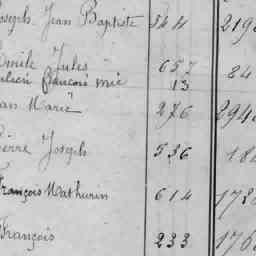 Joseph Jean Baptiste 544 219
Emile Jules 657 84
Julien françois mie 13
Jean Marie 276 294
Pierre Joseph 536 18
François Mathurin 614 173
François 233 176